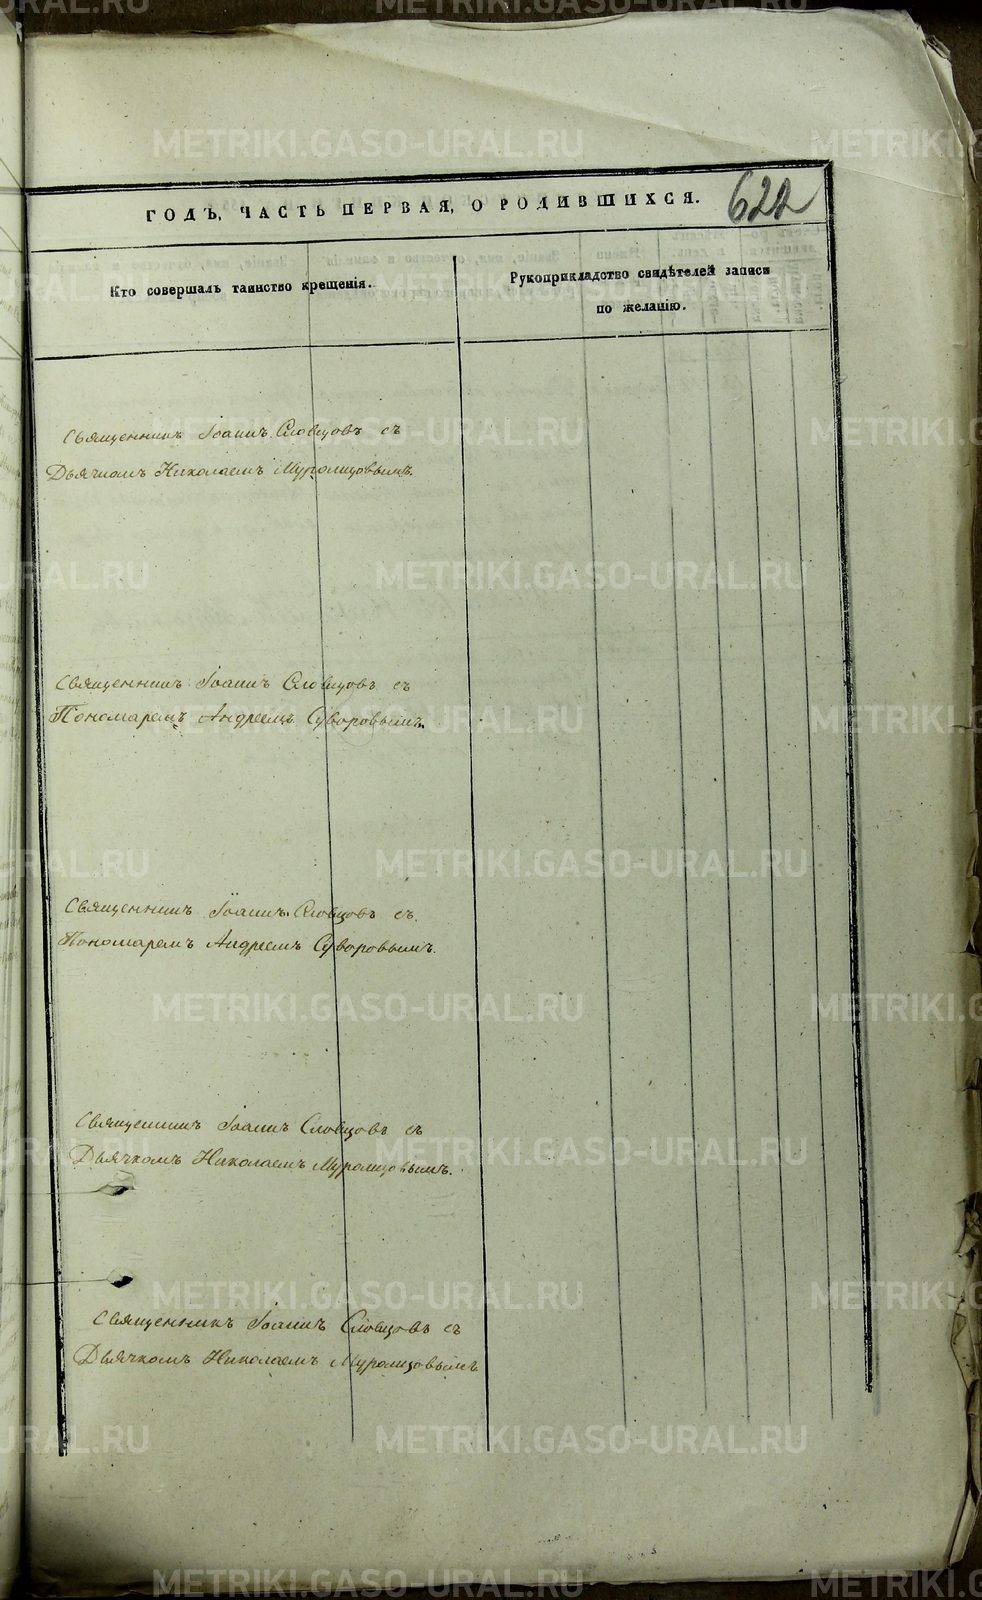 ГОДЪ, ЧАСТЬ ПЕРВАЯ, О РОДИВШИХСЯ.
622
Кто совершалъ таинство крещенія.
Рукоприкладство свидѣтелей записи
по желанію.
Священникъ Іоаннъ Словцовъ съ
Дьячкомъ Николаемъ Муромцовымъ.
Священникъ Іоаннъ Словцовъ съ
Пономаремъ Андреемъ Суворовымъ.
Священникъ Іоаннъ Словцовъ съ
Пономаремъ Андреемъ Суворовымъ.
Священникъ Іоаннъ Словцовъ съ
Дьячкомъ Николаемъ Муромцовымъ.
Священникъ Іоаннъ Словцовъ съ
Дьячкомъ Николаемъ Муромцовымъ
METRIKI.GASO-URAL.RU